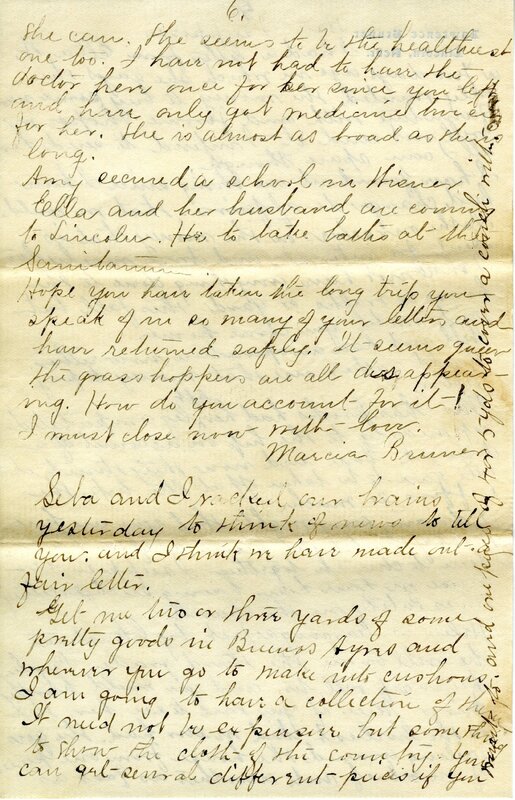 6.
she can. She seems to be the healthiest
one too. I have not had to have the
doctor here once for her since you left
and have only got medicine twice
for her. She is almost as broad as she is
long.
Amy secured a school in Wisner
Ella and her husband are coming
to Lincoln. He to take baths at the
Sanitarium
Hope you have taken the long trip you
speak of in so many of your letters and
have returned safely. It seems queer
the grasshoppers are all disappear-
ing. How do you account for it!
I must close now with love.
Marcia Bruner
Seba and I racked our brains
yesterday to think of news to tell
you. and I think we have made out
fair letter.
Get me two or three yards of some
pretty goods in Buenos Ayres and
wherever you go to make into cushions.
I am going to have a collection of them
It need not be expensive but something
to show the cloth of the country. You
can get several different pieces if you
and one piece of 4 or 5 yds to cover a couch with